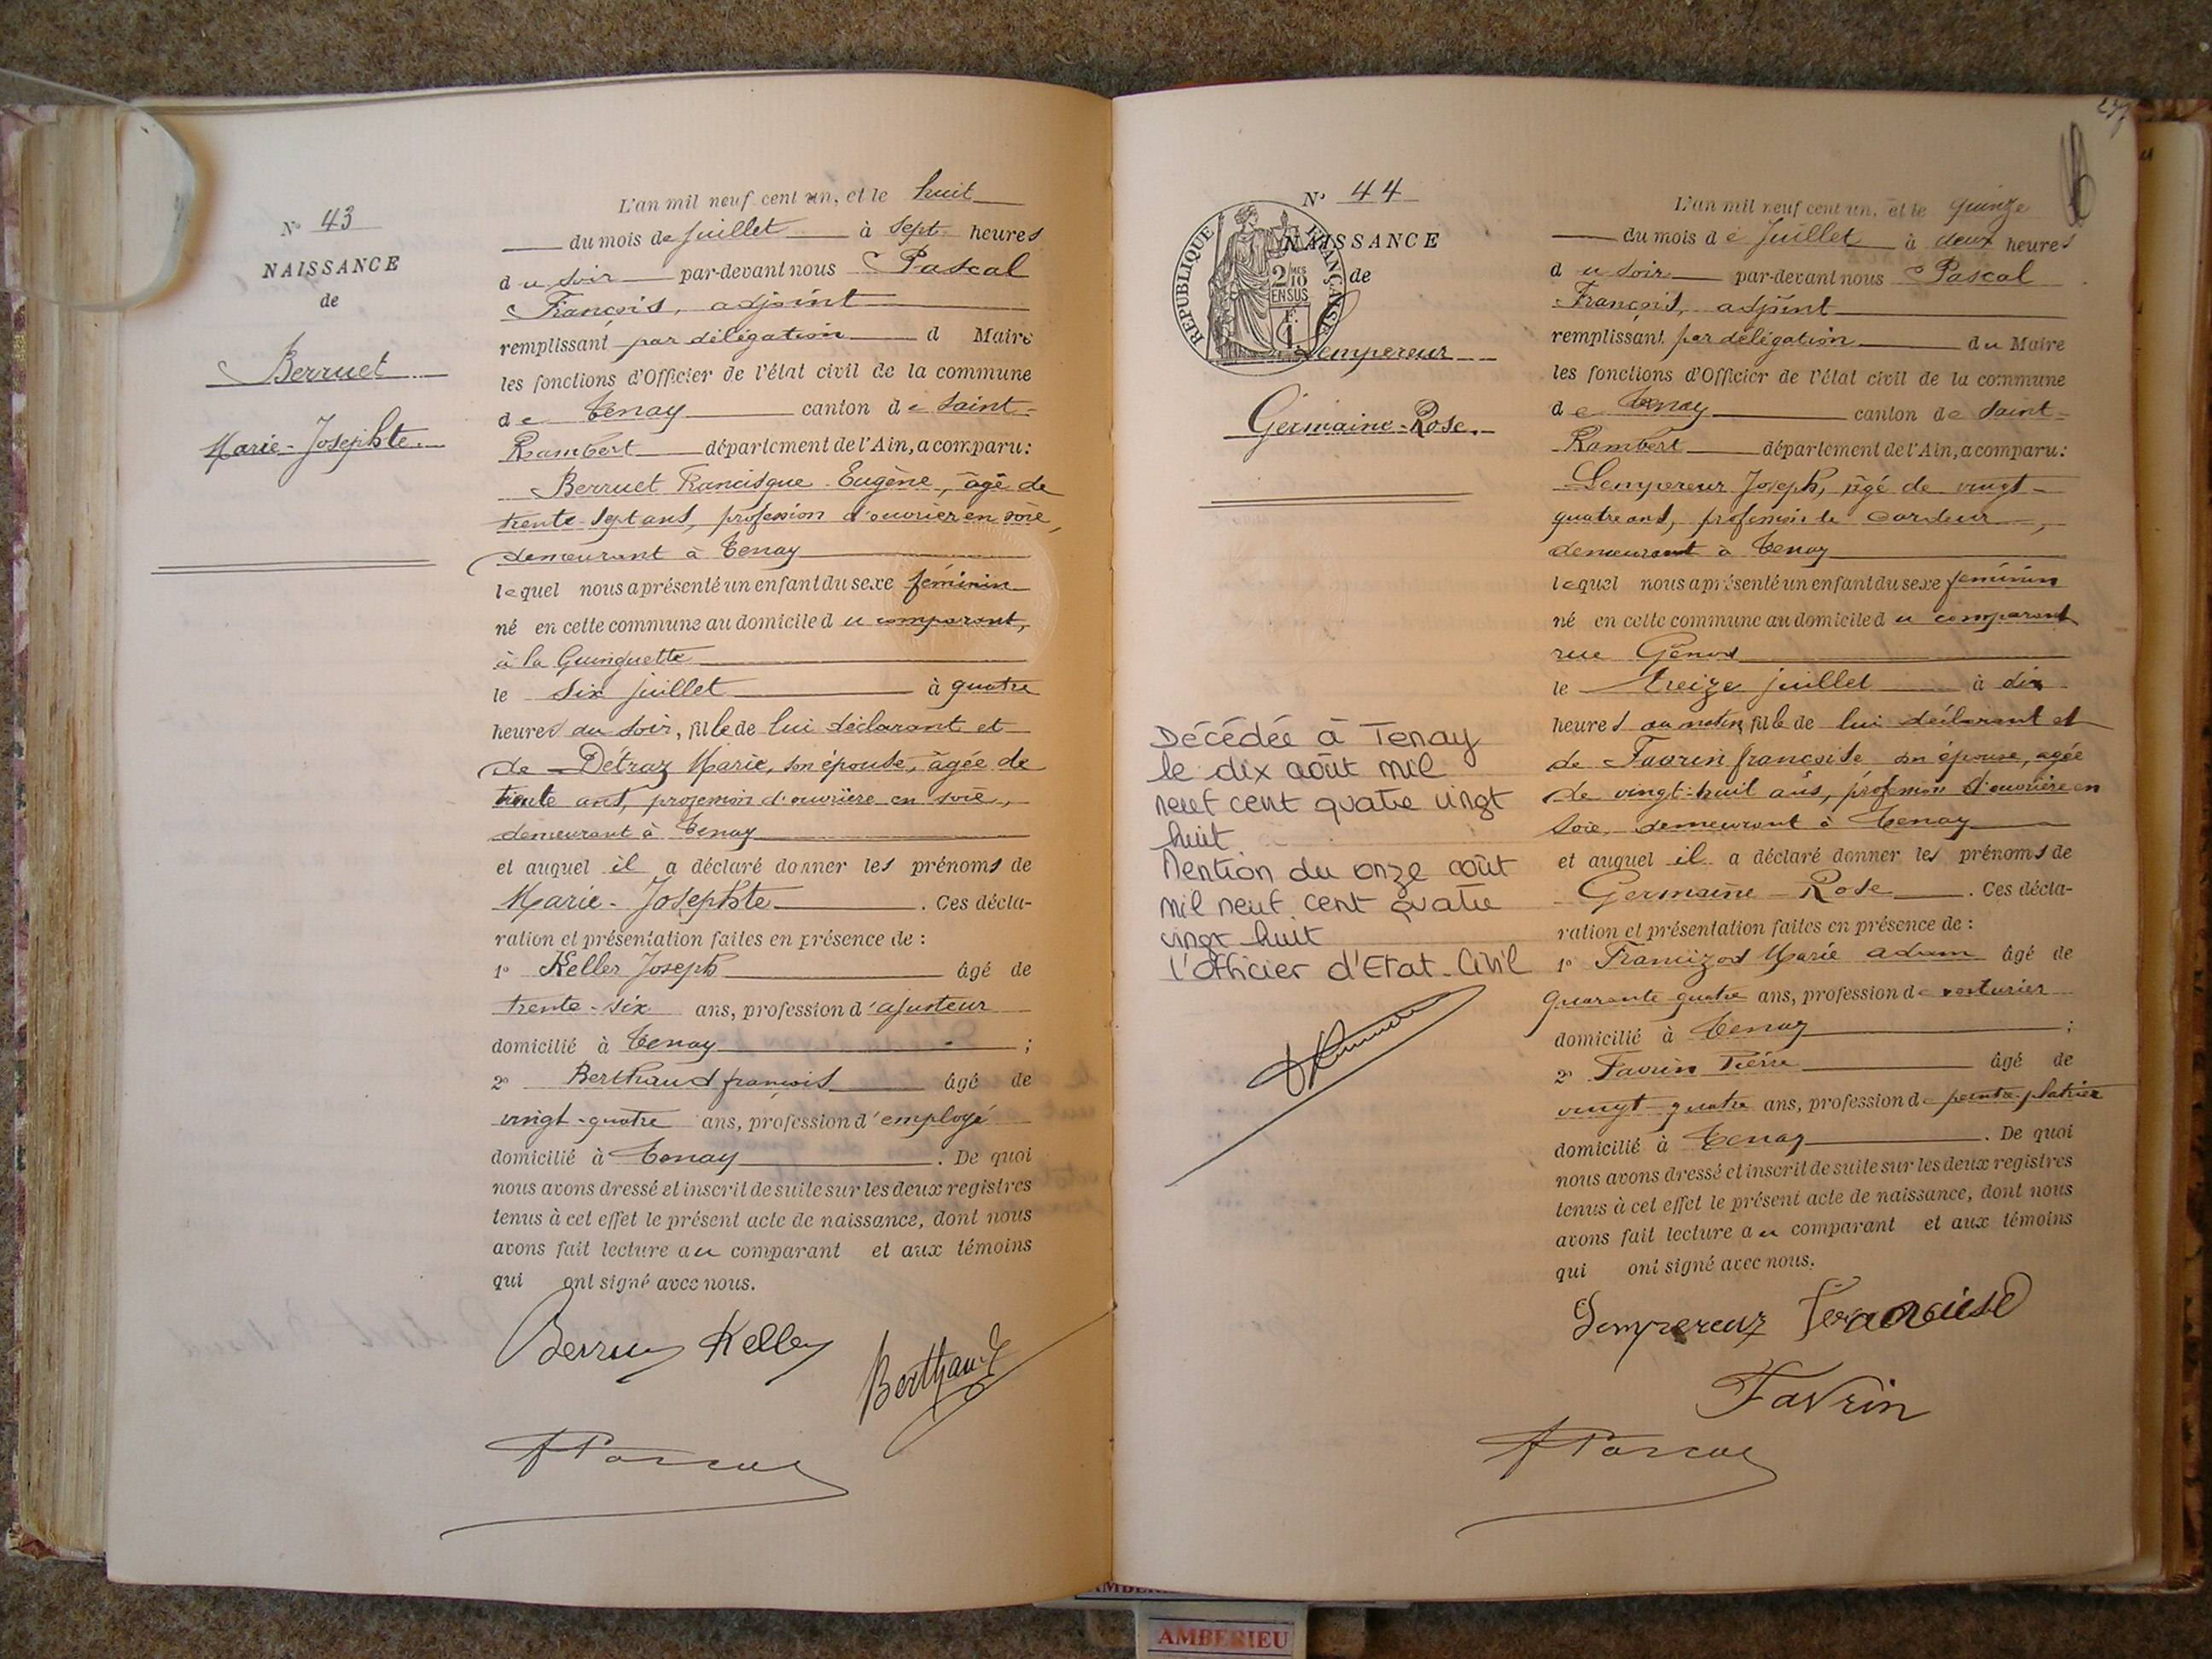 N° 43
NAISSANCE
de
Berruet
Marie-Josephte.
L'an mil neuf cent un, et le huit
du mois de juillet à sept heures
du soir par-devant nous Pascal
François, adjoint
remplissant par délégation d Maire
les fonctions d'Officier de l'état civil de la commune
de Tenay canton de Saint-
Rambert département de l'Ain, a comparu:
Berruet Francisque Eugène, âgé de
trente-sept ans, profession d'ouvrier en soie,
demeurant à Tenay
lequel nous a présenté un enfant du sexe féminin
né en cette commune au domicile du comparant,
à la Guinguette
le six juillet à quatre
heures du soir, fille de lui déclarant et
de Détraz Marie, son épouse, âgée de
trente ans, profession d'ouvrière en soie,
demeurant à Tenay
et auquel il a déclaré donner les prénoms de
Marie-Josephte. Ces décla-
ration et présentation faites en présence de :
1° Keller Joseph âgé de
trente-six ans, profession d'ajusteur
domicilié à Tenay ;
2° Berthaud françois âgé de
vingt-quatre ans, profession d'employé
domicilié à Tenay. De quoi
nous avons dressé et inscrit de suite sur les deux registres
tenus à cet effet le présent acte de naissance, dont nous
avons fait lecture au comparant et aux témoins
qui ont signé avec nous.
Berruet Keller
Berthaud
F Pascal
N° 44
NAISSANCE
de
RÉPUBLIQUE FRANÇAISE
2/10 MES
EN SUS
F.
1
Lempereur
Germaine-Rose.
Décédée à Tenay
le dix août mil
neuf cent quatre vingt
huit.
Mention du onze août
mil neuf cent quatre
vingt huit
L'Officier d'Etat-Civil
L'an mil neuf cent un, et le quinze
du mois de Juillet à deux heures
du soir par-devant nous Pascal
François, adjoint
remplissant par délégation du Maire
les fonctions d'Officier de l'état civil de la commune
de Tenay canton de Saint-
Rambert département de l'Ain, a comparu:
Lempereur Joseph, âgé de vingt-
quatre ans, profession de cardeur,
demeurant à Tenay
lequel nous a présenté un enfant du sexe féminin
né en cette commune au domicile du comparant
rue Génod
le treize juillet à dix
heures du matin, fille de lui déclarant et
de Favrin françoise son épouse, agée
de vingt-huit ans, profession d'ouvrière en
soie, demeurant à Tenay
et auquel il a déclaré donner les prénoms de
Germaine-Rose. Ces décla-
ration et présentation faites en présence de :
1° Marie adam âgé de
quarante quatre ans, profession de voiturier
domicilié à Tenay ;
2° Favrin Pierre âgé de
vingt-quatre ans, profession de peintre platrier
domicilié à Tenay. De quoi
nous avons dressé et inscrit de suite sur les deux registres
tenus à cet effet le présent acte de naissance, dont nous
avons fait lecture au comparant et aux témoins
qui ont signé avec nous.
Lempereur
Favrin
F Pascal
AMBERIEU